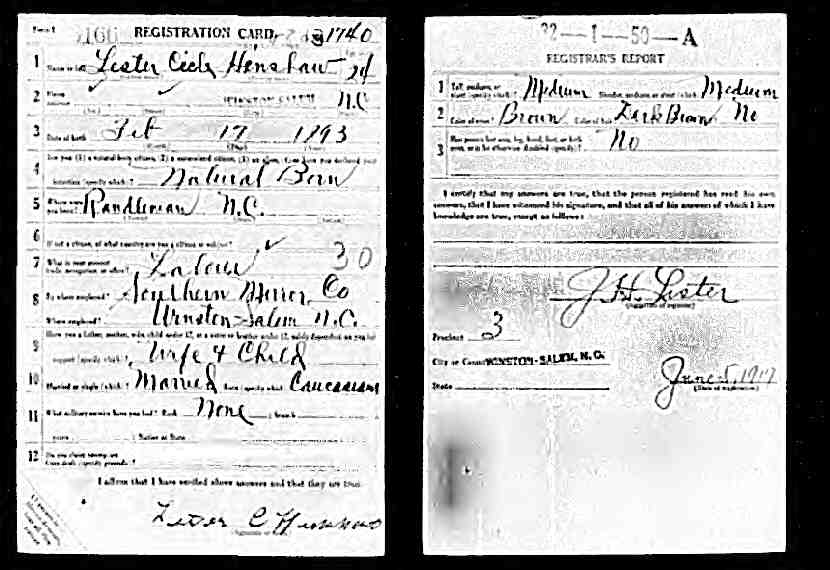 Form 1 166 REGISTRATION CARD 1740
1 Name in full Lester Henshaw 24
2 Home address WINSTON-SALEM N.C.
3 Date of birth Feb 17 1893
4 Are you (1) a natural-born citizen, (2) a naturalized citizen, (3) an alien, (4) or have you declared your
intention (specify which)? Natural Born
5 Where were you born? Randleman N.C.
6 If not a citizen, of what country are you a citizen or subject?
7 What is your present trade, occupation, or office? Labour 30
8 By whom employed? Southern Mirror Co
Where employed? Winston-Salem N.C.
9 Have you a father, mother, wife, child under 12, or a sister or brother under 12, solely dependent on you for
support (specify which)? Wife & Child
10 Married or single (which)? Married Race (specify which)? Caucasian
11 What military service have you had? Rank None ; branch
years ; Nation or State
12 Do you claim exemption from draft (specify grounds)?
I affirm that I have verified above answers and that they are true.
Lester C Henshaw
32—1—50—A
REGISTRAR'S REPORT
1 Tall, medium, or short (specify which)? Medium Slender, medium, or stout (which)? Medium
2 Color of eyes? Brown Color of hair? Dark Brown No
3 Has person lost arm, leg, hand, foot, or both
eyes, or is he otherwise disabled (specify)? No
I certify that my answers are true, that the person registered has read his own
answers, that I have witnessed his signature, and that all of his answers of which I have
knowledge are true, except as follows:
J. H. Lester
(Signature of registrar)
Precinct 3
City or County WINSTON-SALEM, N. C.
State
June 5, 1917
(Date of registration)